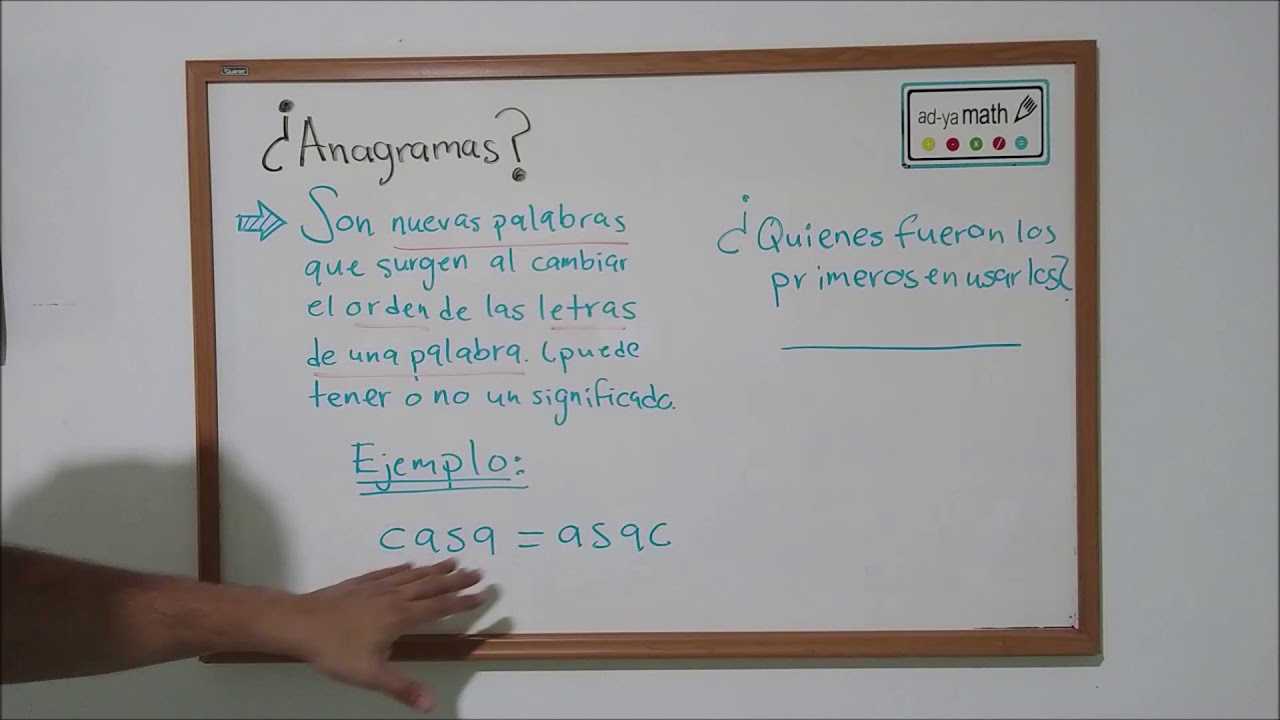 "Quartet"
¿Anagramas?
Son nuevas palabras
que surgen al cambiar
el orden de las letras
de una palabra. (puede
tener o no un significado.
Ejemplo:
casa = asac
ad-ya math
¿Quienes fueron los
primeros en usarlos?